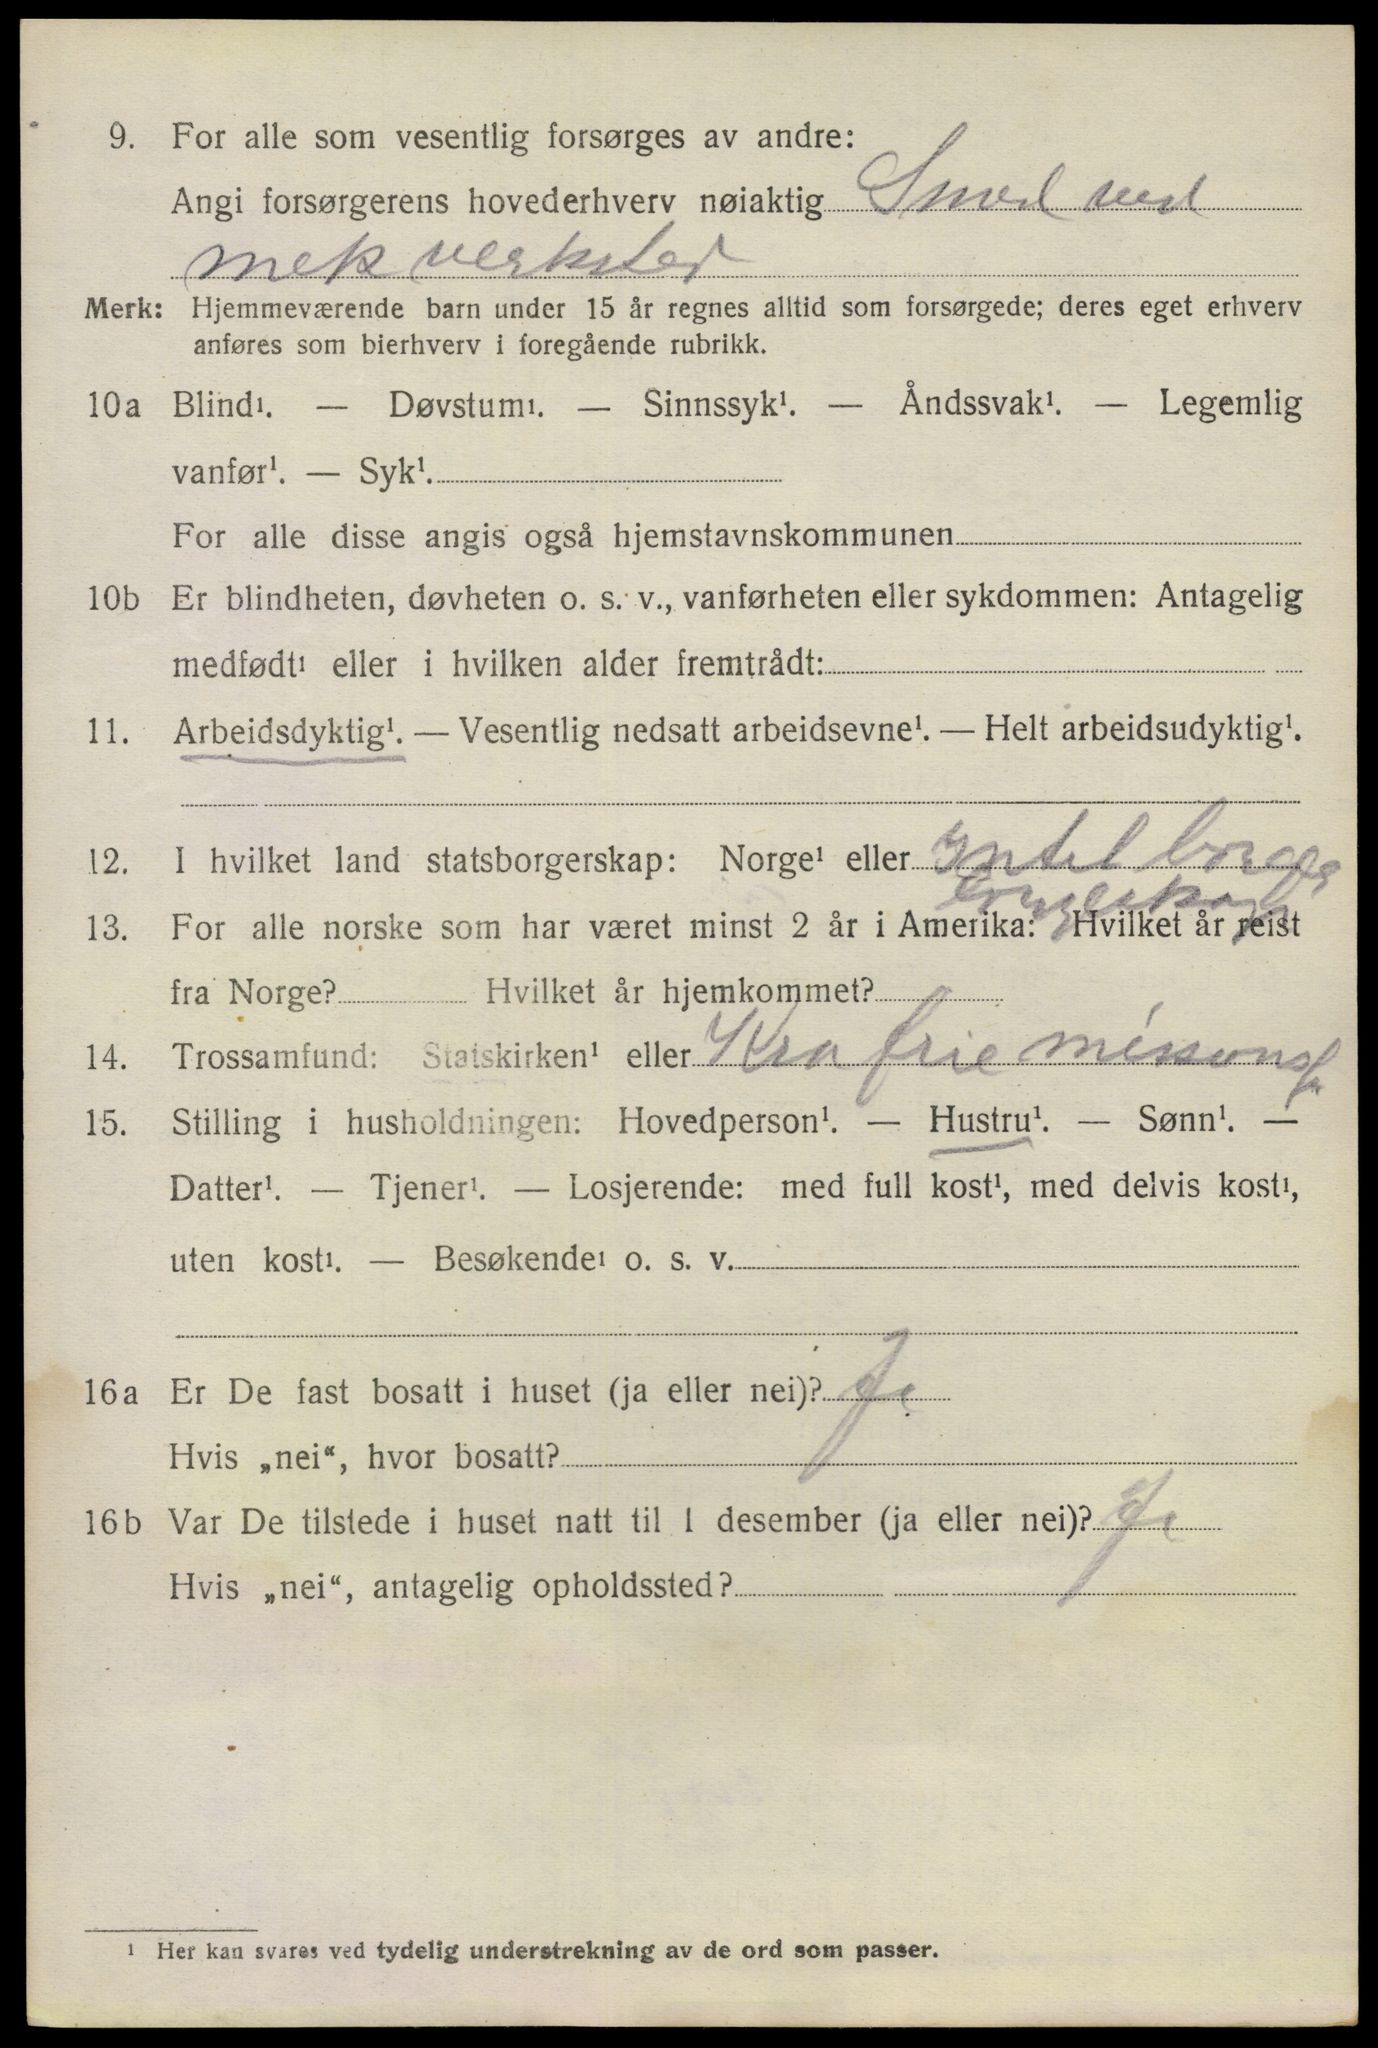 9. For alle som vesentlig forsørges av andre:
Angi forsørgerens hovederhverv nøiaktig Smed ved
mek verksted
Merk: Hjemmeværende barn under 15 år regnes alltid som forsørgede; deres eget erhverv
anføres som bierhverv i foregående rubrikk.
10a Blind¹. — Døvstum¹. — Sinnssyk¹. — Åndssvak¹. — Legemlig
vanfør¹. — Syk¹.
For alle disse angis også hjemstavnskommunen
10b Er blindheten, døvheten o. s. v., vanførheten eller sykdommen: Antagelig
medfødt¹ eller i hvilken alder fremtrådt:
11. Arbeidsdyktig¹. — Vesentlig nedsatt arbeidsevne¹. — Helt arbeidsudyktig¹.
12. I hvilket land statsborgerskap: Norge¹ eller Intet
borgerskap
13. For alle norske som har været minst 2 år i Amerika: Hvilket år reist
fra Norge? Hvilket år hjemkommet?
14. Trossamfund: Statskirken¹ eller frie
15. Stilling i husholdningen: Hovedperson¹. — Hustru¹. — Sønn¹. —
Datter¹. — Tjener¹. — Losjerende: med full kost¹, med delvis kost¹,
uten kost¹. — Besøkende¹ o. s. v.
16a Er De fast bosatt i huset (ja eller nei)? Ja
Hvis „nei“, hvor bosatt?
16b Var De tilstede i huset natt til 1 desember (ja eller nei)? Ja
Hvis „nei“, antagelig opholdssted?
¹ Her kan svares ved tydelig understrekning av de ord som passer.